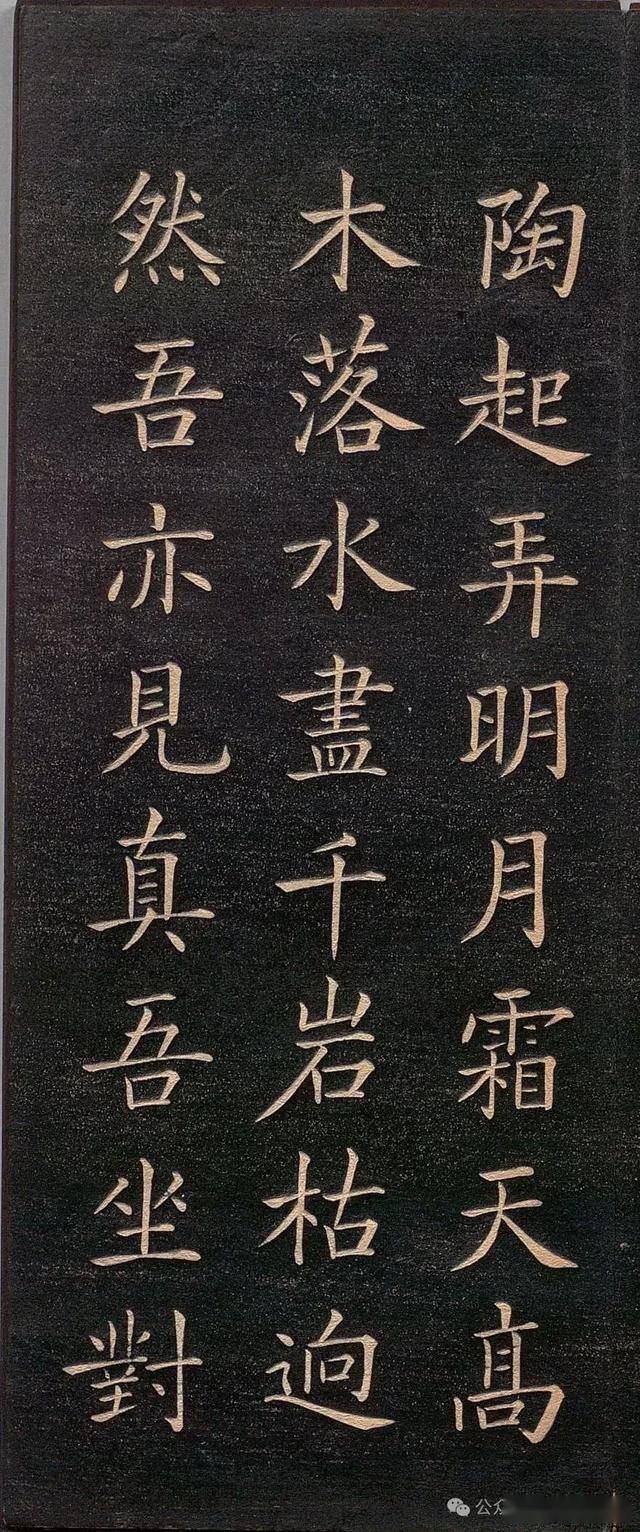 陶起弄明月霜天高
木落水盡千岩枯迥
然吾亦見真吾坐對
公众